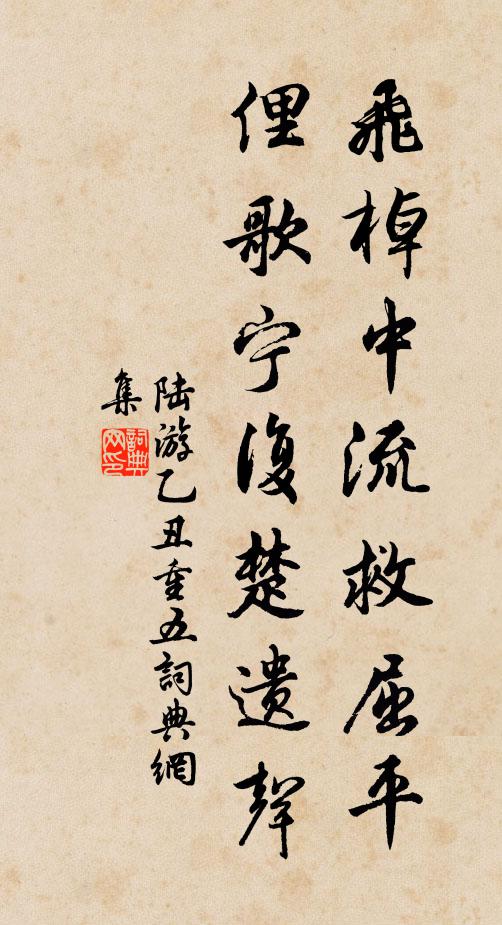 飛棹中流救屈平
俚歌宁復楚遺聲
陆游乙丑重五詞典網
集
詞典网印